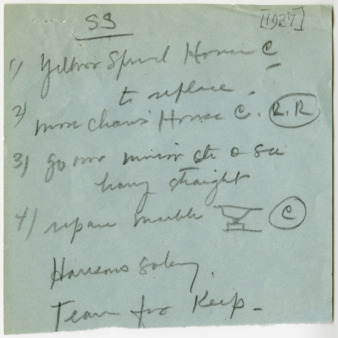 SS [1927]
1) Yellow Spool House C
to replace.
2) more chairs House C. R.R
3) go over mirror etc & see
hang straight
4) repair marble C
Harrisons
Team for Keep-